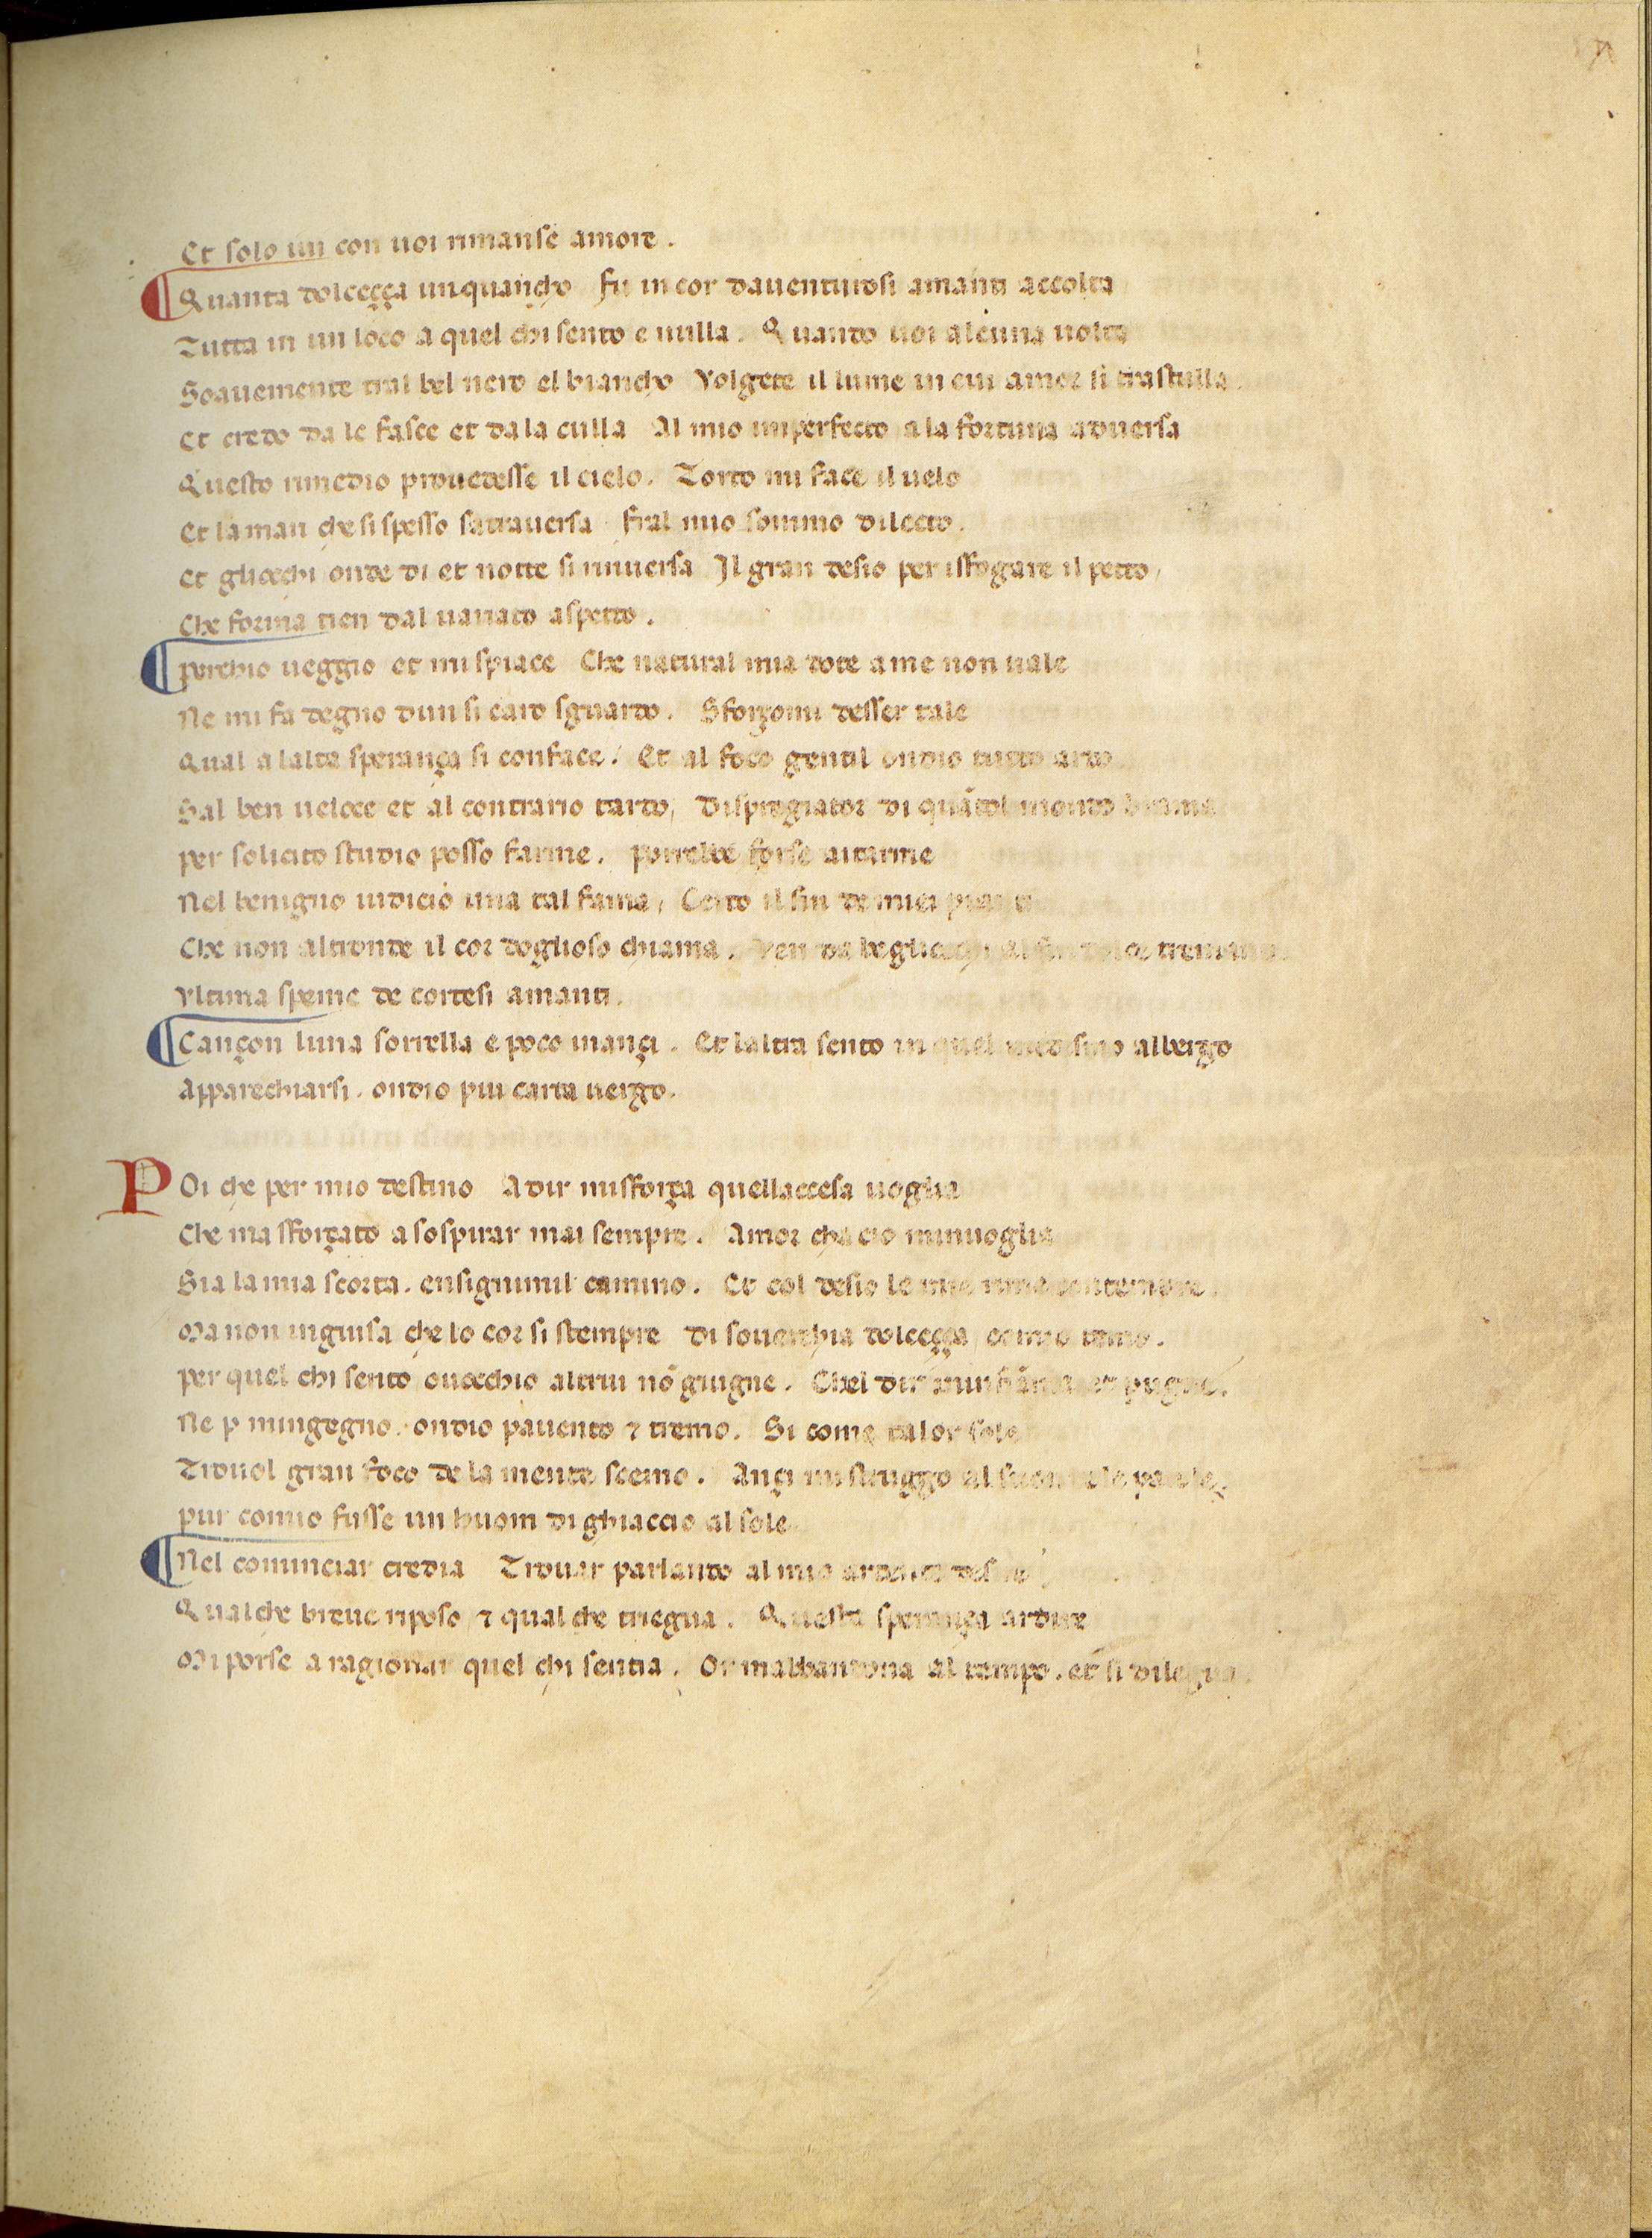 Et solo iui con uoi rimanse amore.
Quanta dolceçça unquancho Fu in cor dauenturosi amanti accolta
Tutta in un loco a quel chi sento e nulla. Quando uoi alcuna uolta
Soauemente tral bel nero el biancho Volgete il lume in cui amor si trastulla.
Et credo da le fasce et da la culla Al mio imperfecto a la fortuna aduersa
Questo rimedio prouedesse il cielo. Torto mi face il uelo
Et la man che si spesso sattrauersa fral mio sommo dilecto.
Et gliocchi onde di et notte si rinuersa Il gran desio per isfogare il petto,
Che forma tien dal uariato aspetto.
Perchio ueggio et mi spiace Che natural mia dote a me non uale
Ne mi fa degno dun si caro sguardo. Sforçomi desser tale
Qual a lalta sperança si conface. Et al foco gentil ondio tutto ardo
Sal ben ueloce et al contrario tardo, Dispregiator di quātol mondo brama
per solicito studio posso farme. Porrebbe forse aitarme
Nel benigno iudicio una tal fama, Certo il fin de miei pianti
Che non altronde il cor doglioso chiama. Ven da begliocchi al fin dolce tremanti
Vltima speme de cortesi amanti.
Cançon luna sorella e poco inançi. Et laltra sento in quel medesmo albergo
Apparechiarsi. ondio piu carta uergo.
POi che per mio destino A dir mi sforça quellaccesa uoglia
Che ma sforçato a sospirar mai sempre. Amor cha cio minuoglia
Sia la mia scorta. ensignimil camino. Et col desio le mie rime contempre.
Ma non inguisa che lo cor si stempre Di souerchia dolceçça comio temo.
per quel chi sento ouocchio altrui nō giugne. Chel dir minfiāma et pugne.
Ne p mingegno. ondio pauento ⁊ tremo. Si come talor sole
Trouol gran foco de la mente scemo. Ançi mi struggo al suon de le parole,
pur comio fusse un huom di ghiaccio al sole
Nel cominciar credia Trouar parlando al mio ardente desire
Qualche breue riposo, ⁊ qual che triegua. Questa sperança ardire
Mi porse a ragionar quel chi sentia. Or mabbandona al tempo. et si dilegua.